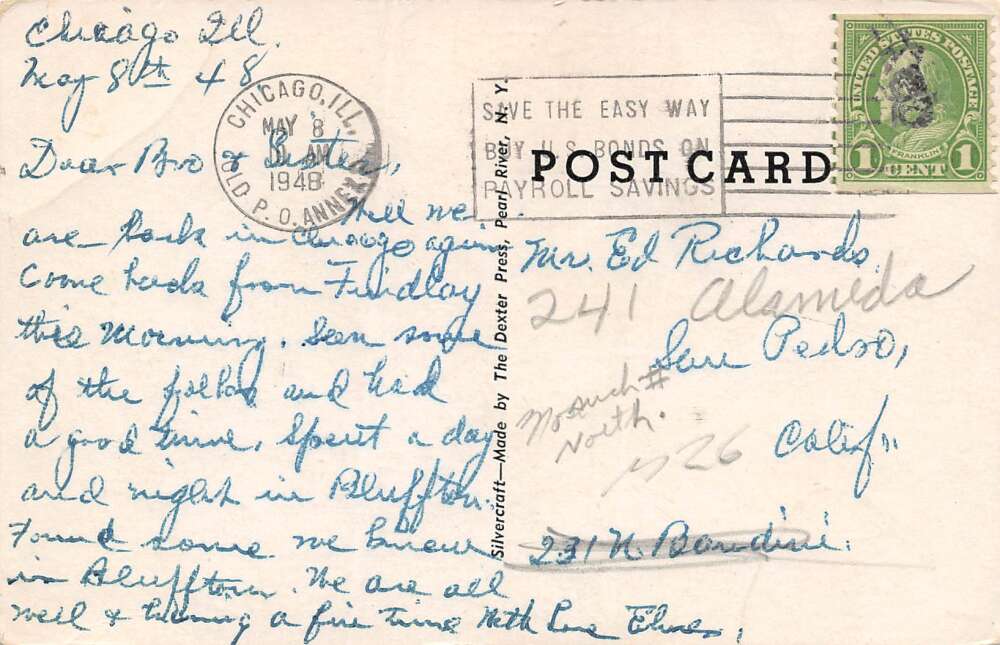 Chicago Ill.
May 8th 48
Dear Bro & Sister,
Well we
are back in Chicago again
Come back from Findlay
this morning. Seen some
of the folks and had
a good time. Spent a day
and night in Bluffton.
Found some we knew
in Bluffton. We are all
well & having a fine time With Love Elmer.
CHICAGO, ILL.
MAY 8
AM
1948
OLD P.O. ANNEX
SAVE THE EASY WAY
BUY U.S. BONDS ON
PAYROLL SAVINGS
UNITED STATES POSTAGE
FRANKLIN
1 CENT 1
POST CARD
Silvercraft—Made by The Dexter Press, Pearl River, N. Y.
Mr. Ed Richards.
241 Alameda
San Pedro,
No such #
North.
Calif.
26
231 N. Bandini.